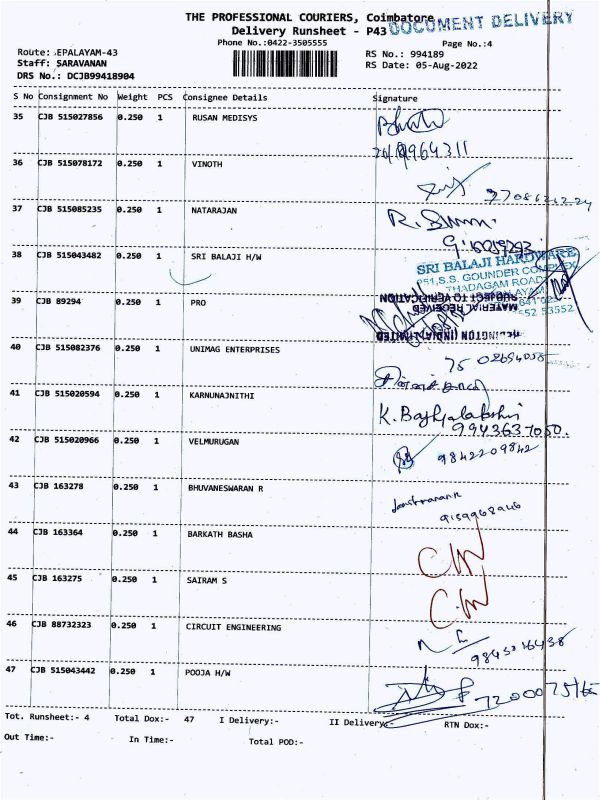 THE PROFESSIONAL COURIERS, Coimbatore
DOCUMENT DELIVERY
Delivery Runsheet - P43
Phone No.:0422-3505555
Page No.:4
Route: EPALAYAM-43
RS No.: 994189
Staff: SARAVANAN
RS Date: 05-Aug-2022
DRS No.: DCJB99418904
S No Consignment No Weight PCS Consignee Details Signature
35 CJB 515027856 0.250 1 RUSAN MEDISYS
36 CJB 515078172 0.250 1 VINOTH
37 CJB 515085235 0.250 1 NATARAJAN
38 CJB 515043482 0.250 1 SRI BALAJI H/W
SRI BALAJI HARDWARE
S.S. GOUNDER COMPLEX
THADAGAM ROAD
39 CJB 89294 0.250 1 PRO
MATERIAL RECEIVED
SUBJECT TO VERIFICATION
(INDIA) LIMITED
40 CJB 515082376 0.250 1 UNIMAG ENTERPRISES
41 CJB 515020594 0.250 1 KARNUNAJNITHI
9943637050.
42 CJB 515020966 0.250 1 VELMURUGAN
9842209842
43 CJB 163278 0.250 1 BHUVANESWARAN R
44 CJB 163364 0.250 1 BARKATH BASHA
45 CJB 163275 0.250 1 SAIRAM S
46 CJB 88732323 0.250 1 CIRCUIT ENGINEERING
47 CJB 515043442 0.250 1 POOJA H/W
Tot. Runsheet:- 4 Total Dox:- 47 I Delivery:- II Delivery:- RTN Dox:-
Out Time:- In Time:- Total POD:-